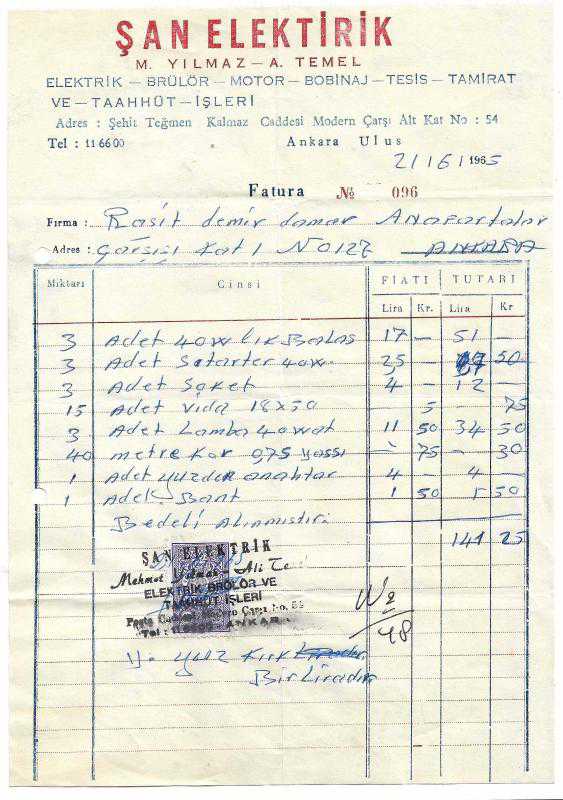 ŞAN ELEKTİRİK
M. YILMAZ — A. TEMEL
ELEKTRİK — BRÜLÖR — MOTOR — BOBİNAJ — TESİS — TAMİRAT
VE — TAAHHÜT — İŞLERİ
Adres : Şehit Teğmen Kalmaz Caddesi Modern Çarşı Alt Kat No : 54
Tel : 11 66 00 Ankara Ulus
21/6/1965
Fatura № 096
Firma : Raşit demir damar Anafartalar
Adres : Çarşısı Kat 1 No 127 ANKARA
Miktarı Cinsi FİATI TUTARI
Lira Kr. Lira Kr
3 Adet 40W lık Balas 17 — 51 —
3 Adet Satarter 40W. 25 — 50
3 Adet Soket 4 — 12 —
15 Adet Vida 18x50 — 5 — 75
3 Adet Lamba 40 wat 11 50 34 50
40 metre Kor 0,75 yassı — 75 — 30
1 Adet yüzden anahtar 4 — 4 —
1 Adet Bant 1 50 1 50
Bedeli Alınmıştır.
141 25
ŞAN ELEKTRİK
Mehmet Yılmaz Ali Te
ELEKTRİK BRÜLÖR VE
TAAHHÜT İŞLERİ
Modern Çarşı No. 54
Tel : ANKARA
No
48
Y. yüz Kırk
Bir Liradır